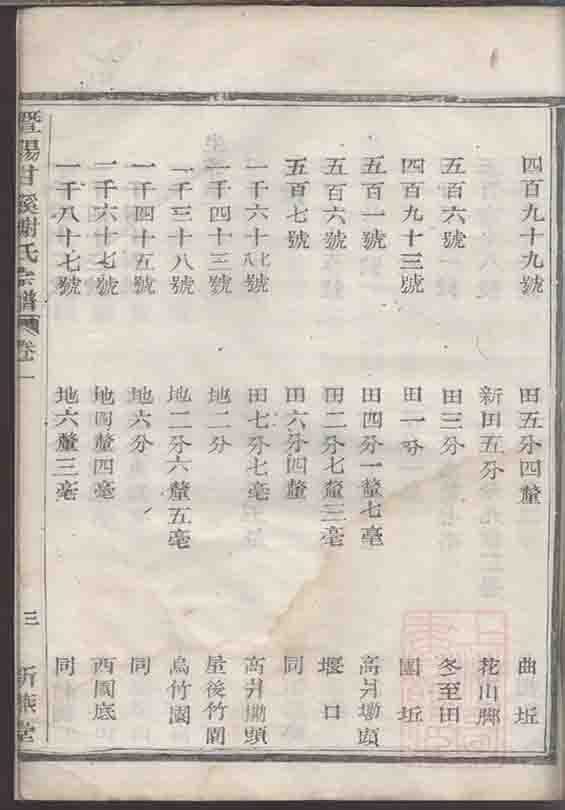 四百九十九號 田五分四釐 曲坵
新田五分 花山腳
五百六號 田三分 冬至田
四百九十三號 田一分 圓坵
五百一號 田四分一釐七毫 高井墈頭
五百六號 田二分七釐三毫 堰口
五百七號 田六分四釐 同
一千六十七八號 田七分七毫 高井墈頭
一千四十三號 地二分 屋後竹園
一千三十八號 地二分六釐五毫 烏竹園
一千四十五號 地六分 同
一千六十七號 地四釐四毫 西園底
一千八十七號 地六釐三毫 同
暨陽甘溪謝氏宗譜 卷一 三